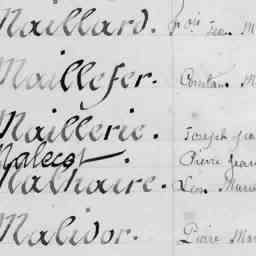 Maillard. fois Jean M
Maillefer. Constan. M
Maillerie. Joseph Jea
Malecot Pierre Jean
Malhaire. Leon Marie
Malidor. Pierre Mar